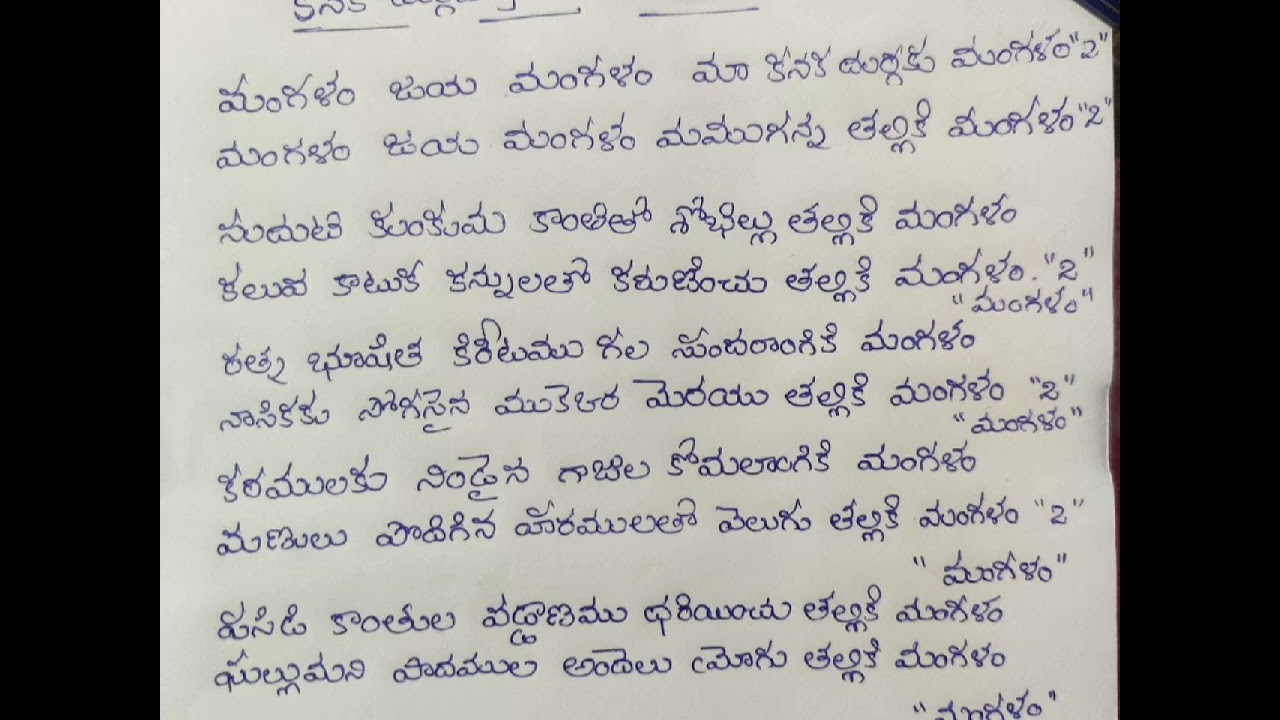 మంగళం జయ మంగళం మా కనక దుర్గకు మంగళం "2"
మంగళం జయ మంగళం మముగన్న తల్లికి మంగళం "2"
నుదుటి కుంకుమ కాంతితో శోభిల్లు తల్లికి మంగళం
కలువ కాటుక కన్నులతో కరుణించు తల్లికి మంగళం. "2"
"మంగళం"
రత్న భూషిత కిరీటము గల సుందరాంగికి మంగళం
నాసికకు సోగసైన ముకెఱర మెరయు తల్లికి మంగళం "2"
"మంగళం"
కరములకు నిండైన గాజుల కోమలాంగికి మంగళం
మణులు పొదిగిన హారములతో వెలుగు తల్లికి మంగళం "2"
"మంగళం"
పసిడి కాంతుల వడ్డాణము ధరియించు తల్లికి మంగళం
ఘల్లుమని పాదముల అందెలు మ్రోగు తల్లికి మంగళం
"మంగళం"